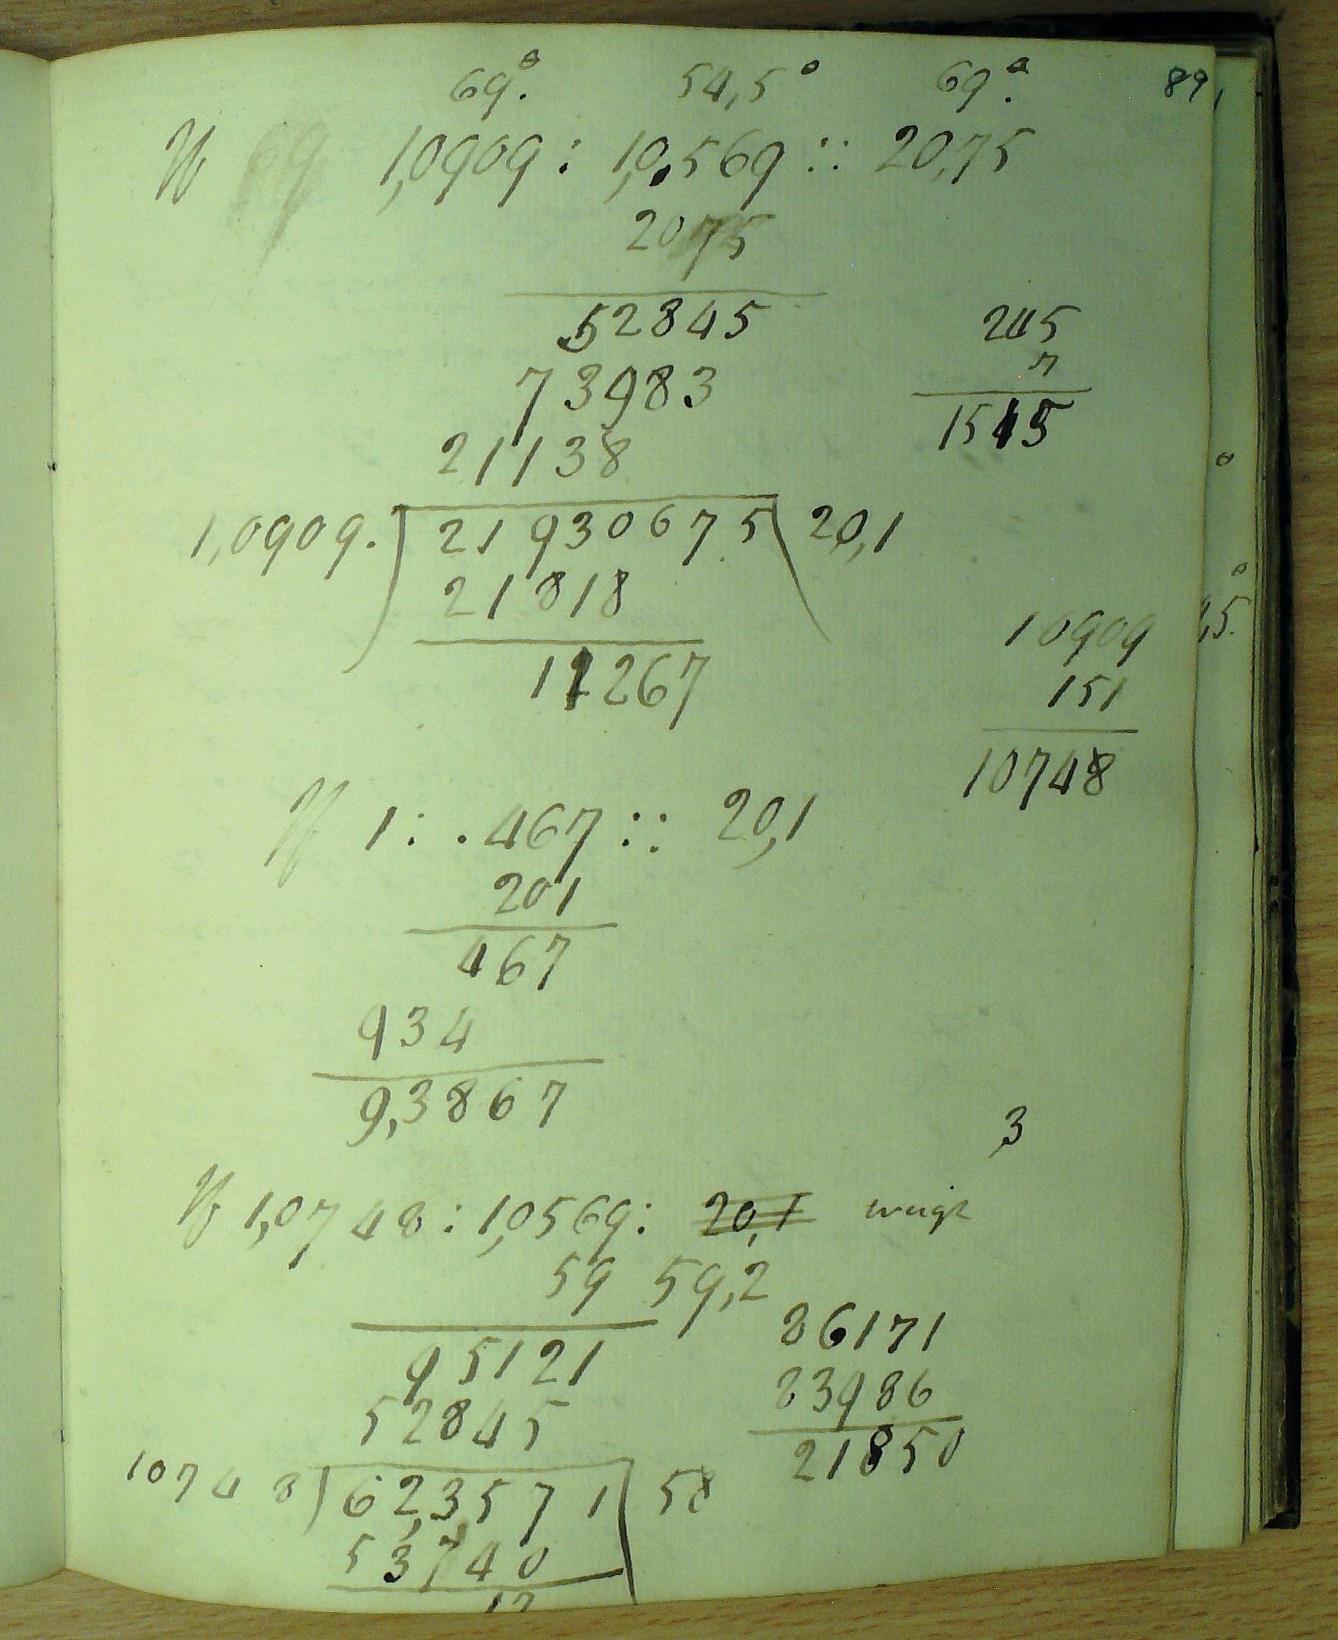 89,
69.° 54,5° 69.°
If 69 1,0909 : 1,0.569 :: 20,75
2075
52845
73983
21138
1,0909. ) 21930675 ( 20,1
21818
11267
215
7
1515
10909
151
10748
,5.
If 1 : .467 :: 20,1
201
467
934
9,3867
3
If 1,0748 : 1,0569 : 20,1 weigh
59 59,2
95121
52845
10748 ) 62,3571 ( 58
53740
86171
83986
21850